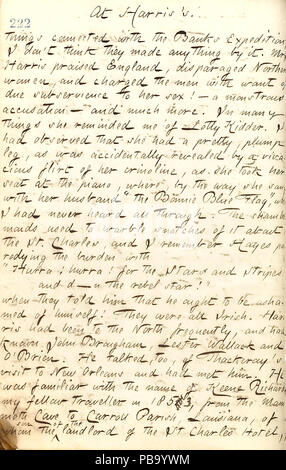 222
At Harris's.
things connected with the Banks Expedition,
I don't think they made anything by it. Mrs
Harris praised England, disparaged Northern
women, and charged the men with want of
due subservience to her sex! — a monstrous
accusation — and much more. In many
things she reminded me of Lotty Kidder. I
had observed that she had a pretty, plump
leg, as was accidentally revealed by a viva-
cious flirt of her crinoline, as she took her
seat at the piano, where, by the way she sang
with her husband "the Bonnie Blue Flag," which
I had never heard all through. The chamber-
maids used to warble snatches of it about
the St Charles, and I remember Hayes pa-
rodying the burden with
"Hurra! hurra! for the Stars and Stripes
and d—n the rebel star!"
when they told him that he ought to be asha-
med of himself! They were all Irish. Har-
ris had been to the North frequently, and had
known John Brougham, Lester Wallack and
O'Brien. He talked, too, of Thackeray's
visit to New Orleans and had met him. He
was familiar with the name of Keene Richards
my fellow traveller in 1853, from the Mam-
moth Cave to Carroll Parish, Louisiana, of
whom the landlord of the St Charles Hotel,
son of
alamy
Image ID: PB9YWM
www.alamy.com